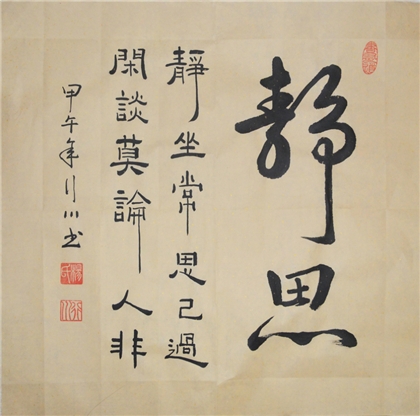 靜思
靜坐常思己過
閑談莫論人非
甲午年行川書